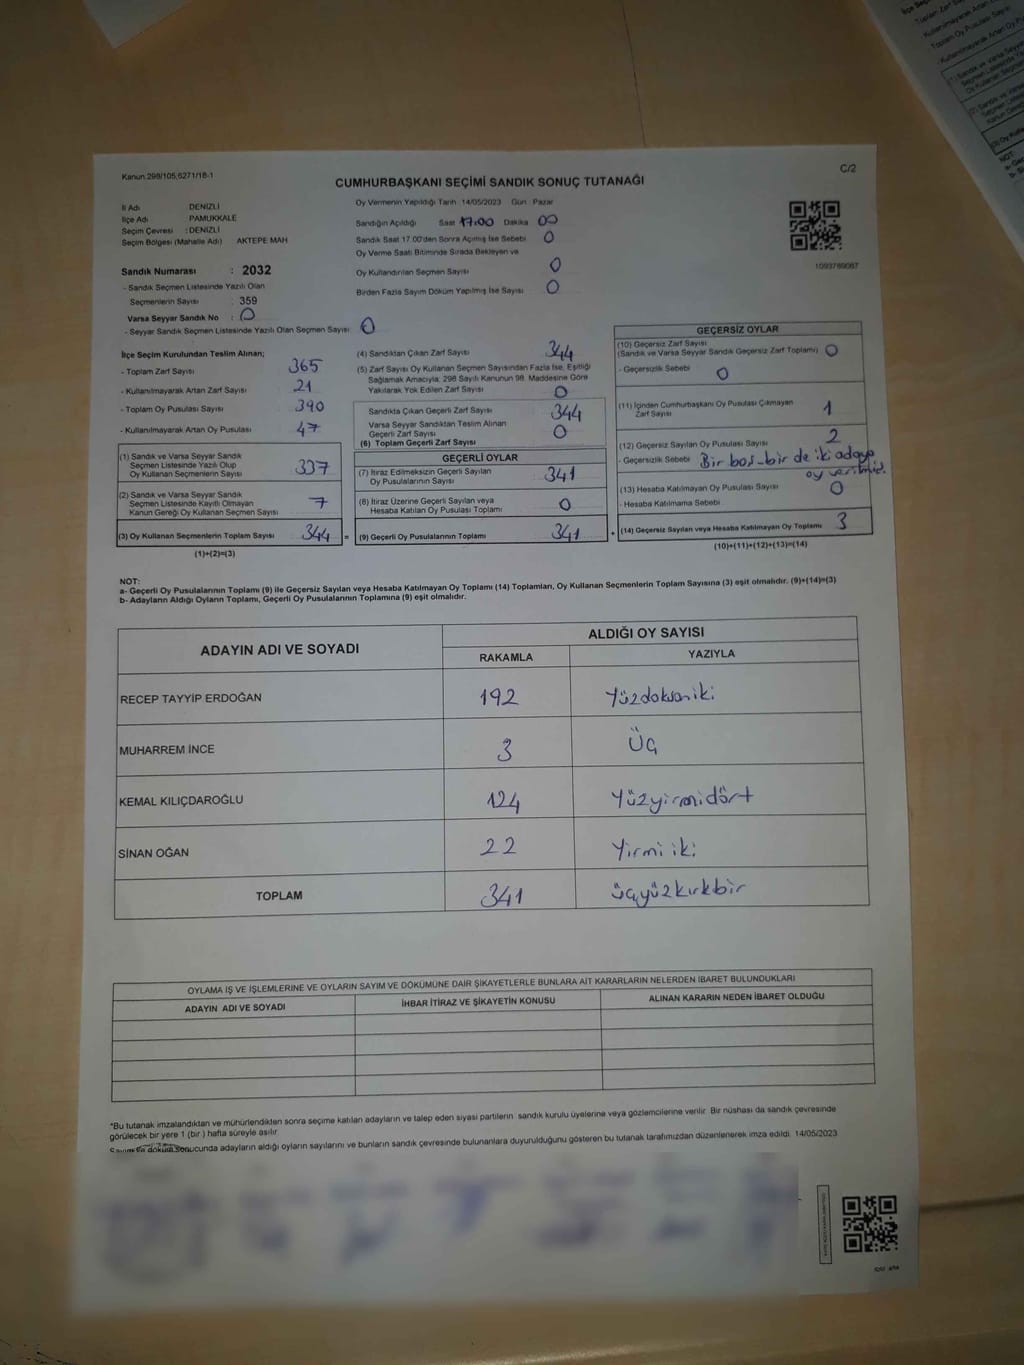 Kanun.298/105,6271/18-1
C/2
CUMHURBAŞKANI SEÇİMİ SANDIK SONUÇ TUTANAĞI
İl Adı DENİZLİ
İlçe Adı PAMUKKALE
Seçim Çevresi : DENİZLİ
Seçim Bölgesi (Mahalle Adı) AKTEPE MAH
Sandık Numarası : 2032
- Sandık Seçmen Listesinde Yazılı Olan
Seçmenlerin Sayısı : 359
Varsa Seyyar Sandık No : 0
- Seyyar Sandık Seçmen Listesinde Yazılı Olan Seçmen Sayısı 0
Oy Vermenin Yapıldığı Tarih 14/05/2023 Gün Pazar
Sandığın Açıldığı Saat 17:00 Dakika 00
Sandık Saat 17.00'den Sonra Açılmış İse Sebebi 0
Oy Verme Saati Bitiminde Sırada Bekleyen ve
Oy Kullandırılan Seçmen Sayısı 0
Birden Fazla Sayım Döküm Yapılmış İse Sayısı 0
1093789087
İlçe Seçim Kurulundan Teslim Alınan;
- Toplam Zarf Sayısı 365
- Kullanılmayarak Artan Zarf Sayısı 21
- Toplam Oy Pusulası Sayısı 390
- Kullanılmayarak Artan Oy Pusulası 47
(1) Sandık ve Varsa Seyyar Sandık
Seçmen Listesinde Yazılı Olup
Oy Kullanan Seçmenlerin Sayısı 337
(2) Sandık ve Varsa Seyyar Sandık
Seçmen Listesinde Kayıtlı Olmayan
Kanun Gereği Oy Kullanan Seçmen Sayısı 7
(3) Oy Kullanan Seçmenlerin Toplam Sayısı 344 =
(1)+(2)=(3)
(4) Sandıktan Çıkan Zarf Sayısı 344
(5) Zarf Sayısı Oy Kullanan Seçmen Sayısından Fazla İse, Eşitliği
Sağlamak Amacıyla; 298 Sayılı Kanunun 98. Maddesine Göre
Yakılarak Yok Edilen Zarf Sayısı 0
Sandıkta Çıkan Geçerli Zarf Sayısı 344
Varsa Seyyar Sandıktan Teslim Alınan
Geçerli Zarf Sayısı 0
(6) Toplam Geçerli Zarf Sayısı
GEÇERLİ OYLAR
(7) İtiraz Edilmeksizin Geçerli Sayılan
Oy Pusulalarının Sayısı 341
(8) İtiraz Üzerine Geçerli Sayılan veya
Hesaba Katılan Oy Pusulası Toplamı 0
(9) Geçerli Oy Pusulalarının Toplamı 341 +
GEÇERSİZ OYLAR
(10) Geçersiz Zarf Sayısı
(Sandık ve Varsa Seyyar Sandık Geçersiz Zarf Toplamı) 0
- Geçersizlik Sebebi 0
(11) İçinden Cumhurbaşkanı Oy Pusulası Çıkmayan
Zarf Sayısı 1
(12) Geçersiz Sayılan Oy Pusulası Sayısı 2
- Geçersizlik Sebebi Bir boş-bir de iki adaya
oy verilmiş.
(13) Hesaba Katılmayan Oy Pusulası Sayısı 0
- Hesaba Katılmama Sebebi
(14) Geçersiz Sayılan veya Hesaba Katılmayan Oy Toplamı 3
(10)+(11)+(12)+(13)=(14)
NOT:
a- Geçerli Oy Pusulalarının Toplamı (9) ile Geçersiz Sayılan veya Hesaba Katılmayan Oy Toplamı (14) Toplamları, Oy Kullanan Seçmenlerin Toplam Sayısına (3) eşit olmalıdır. (9)+(14)=(3)
b- Adayların Aldığı Oyların Toplamı, Geçerli Oy Pusulalarının Toplamına (9) eşit olmalıdır.
ADAYIN ADI VE SOYADI ALDIĞI OY SAYISI
RAKAMLA YAZIYLA
RECEP TAYYİP ERDOĞAN 192 Yüzdoksaniki
MUHARREM İNCE 3 Üç
KEMAL KILIÇDAROĞLU 124 Yüzyirmidört
SİNAN OĞAN 22 Yirmi iki
TOPLAM 341 üçyüzkırkbir
OYLAMA İŞ VE İŞLEMLERİNE VE OYLARIN SAYIM VE DÖKÜMÜNE DAİR ŞİKAYETLERLE BUNLARA AİT KARARLARIN NELERDEN İBARET BULUNDUKLARI
ADAYIN ADI VE SOYADI İHBAR İTİRAZ VE ŞİKAYETİN KONUSU ALINAN KARARIN NEDEN İBARET OLDUĞU
*Bu tutanak imzalandıktan ve mühürlendikten sonra seçime katılan adayların ve talep eden siyasi partilerin sandık kurulu üyelerine veya gözlemcilerine verilir. Bir nüshası da sandık çevresinde
görülecek bir yere 1 (bir) hafta süreyle asılır.
Sayım ve döküm sonucunda adayların aldığı oyların sayılarını ve bunların sandık çevresinde bulunanlara duyurulduğunu gösteren bu tutanak tarafımızdan düzenlenerek imza edildi. 14/05/2023